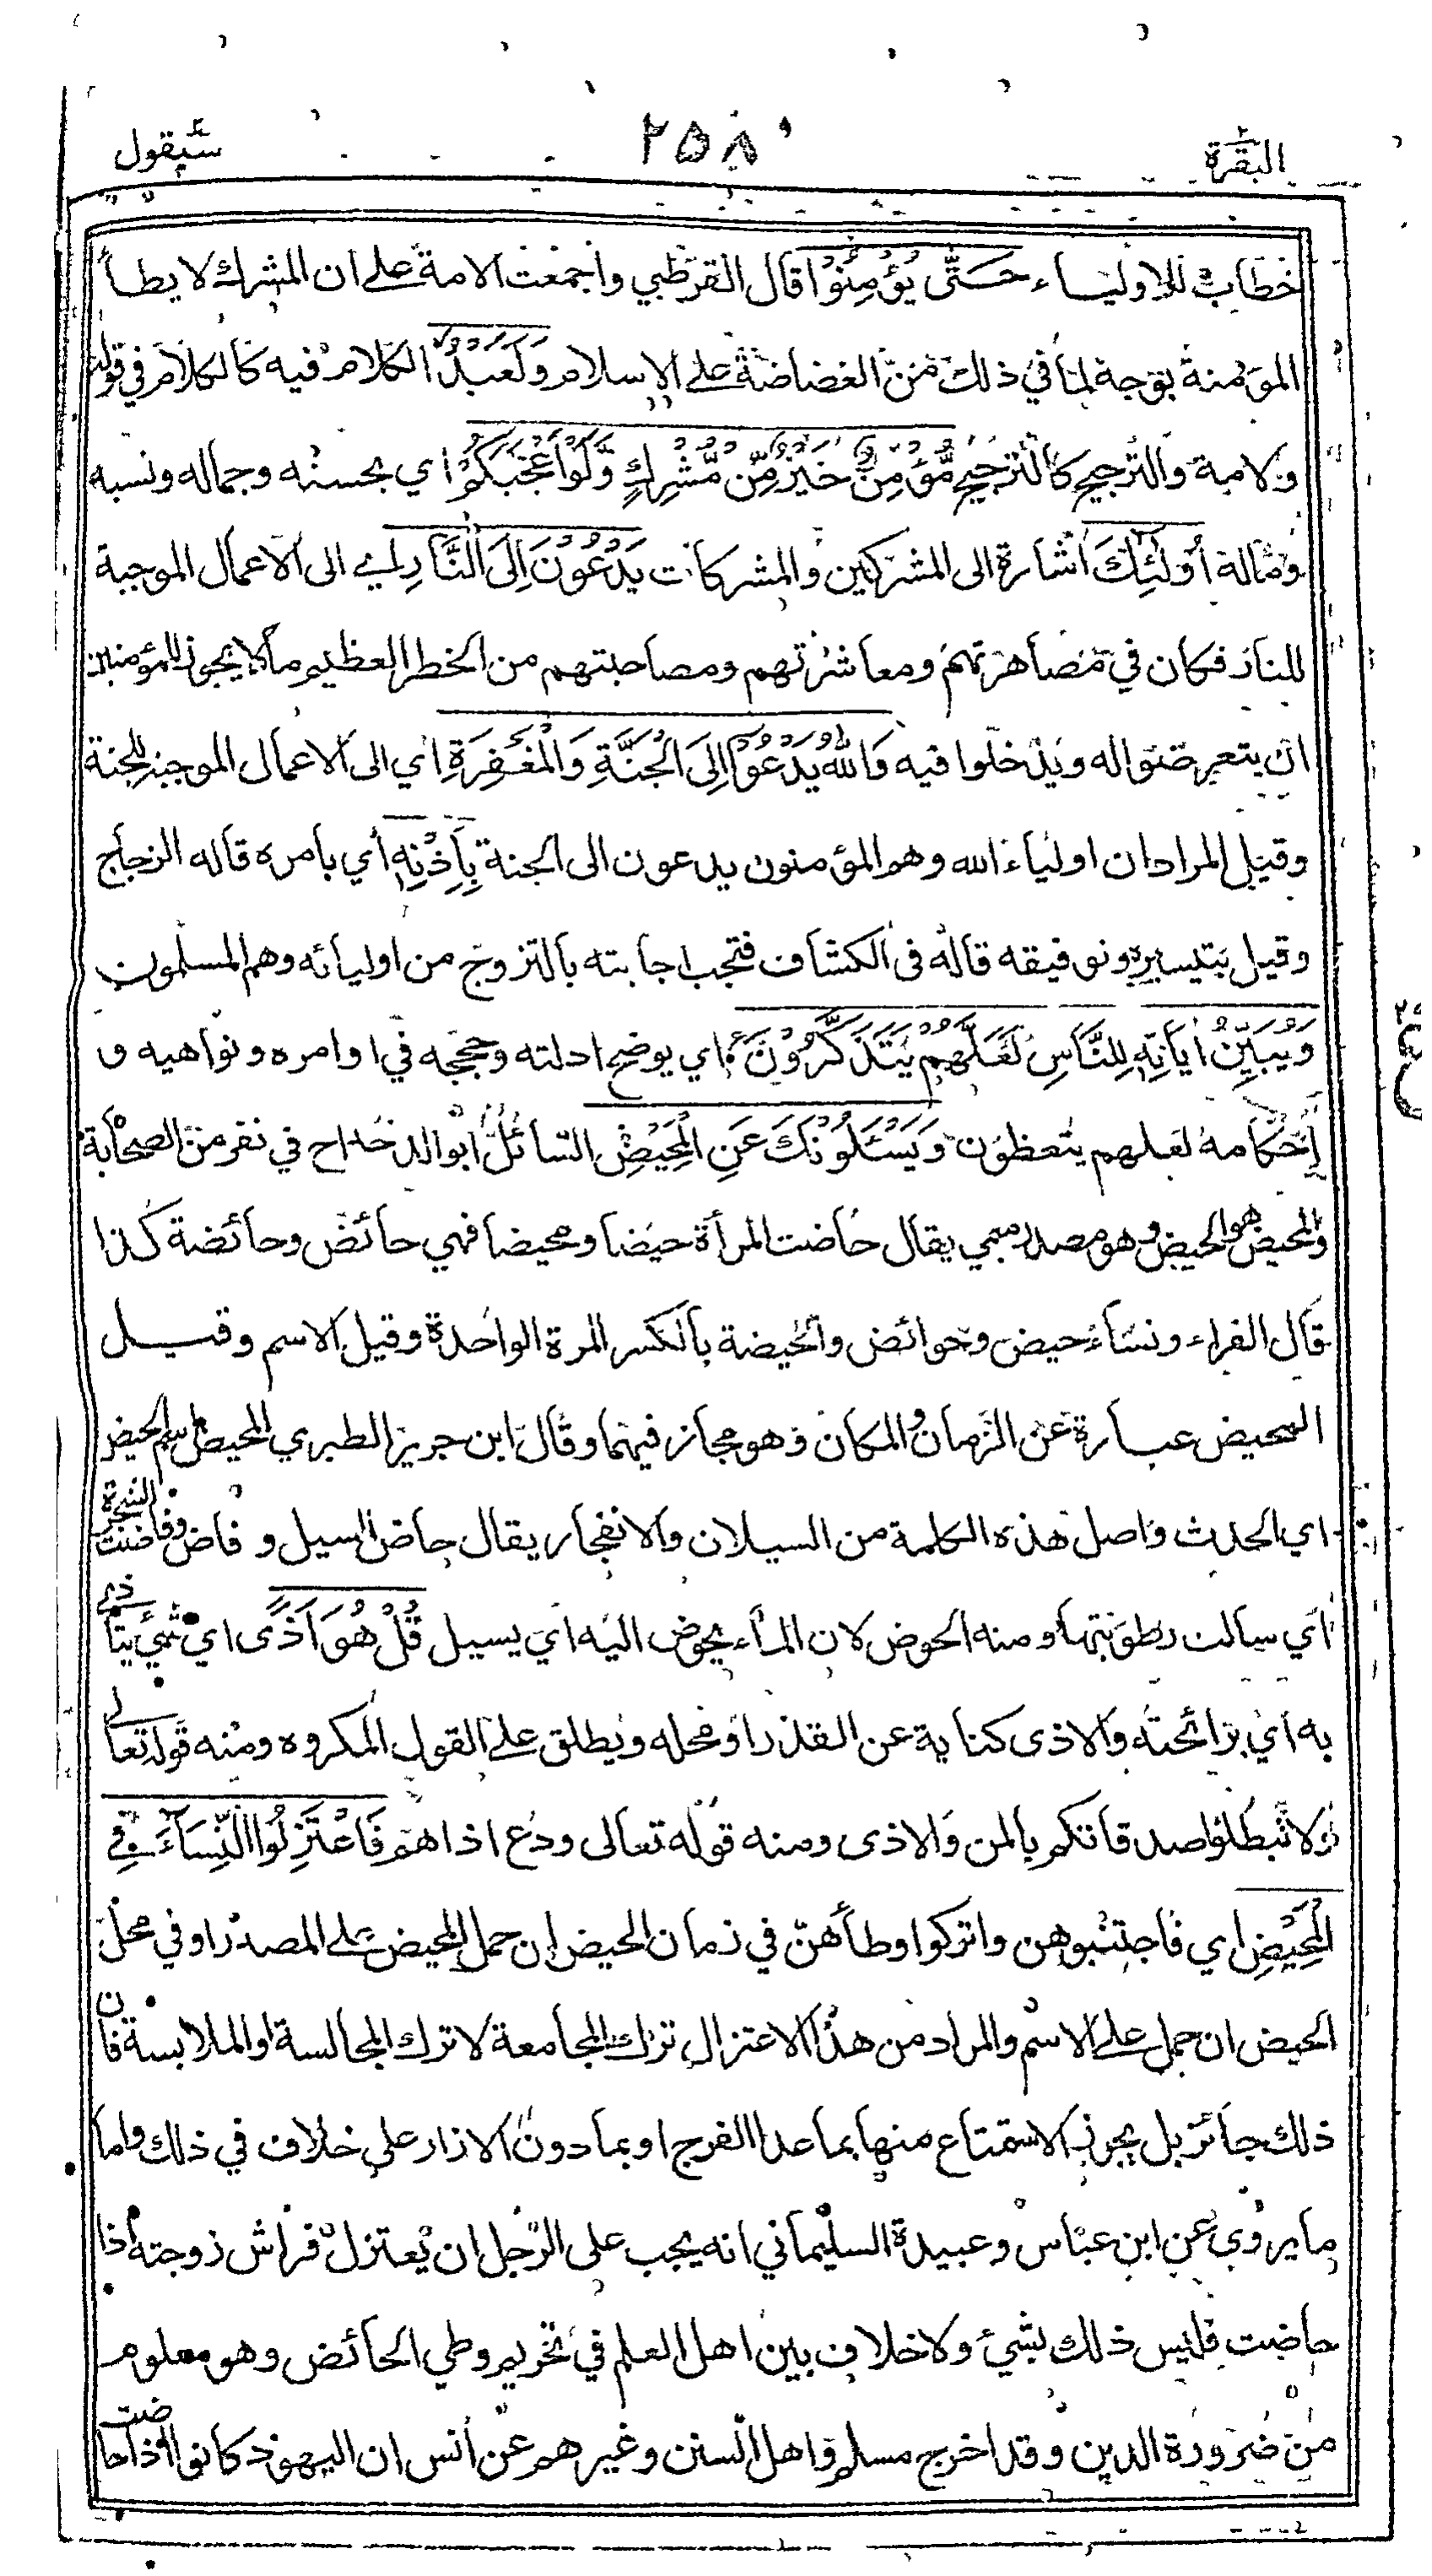 البقرة ٢٥٨ سيقول
خطاب للاولياء حَتَّى يُؤْمِنُوْا قال القرطبي واجمعت الامة على ان المشرك لا يطأ
المؤمنة بوجه لما في ذلك من الغضاضة على الاسلام وَلَعَبْدٌ الكلام فيه كالكلام في قوله
ولامة والترجيح كالترجيح مُّؤْمِنٌ خَيْرٌ مِّنْ مُّشْرِكٍ وَّلَوْ اَعْجَبَكُمْ اي بحسنه وجماله ونسبه
وماله اُولٰٓئِكَ اشارة الى المشركين والمشركات يَدْعُوْنَ اِلَى النَّارِ اي الى الاعمال الموجبة
للنار فكان في مصاهرتهم ومعاشرتهم ومصاحبتهم من الخطر العظيم ما لا يجوز للمؤمنين
ان يتعرضوا له ويدخلوا فيه وَاللّٰهُ يَدْعُوْٓا اِلَى الْجَنَّةِ وَالْمَغْفِرَةِ اي الى الاعمال الموجبة للجنة
وقيل المراد ان اولياء الله وهم المؤمنون يدعون الى الجنة بِاِذْنِهٖ أي بامره قاله الزجاج
وقيل بتيسيره وتوفيقه قاله في الكشاف فتجب اجابته بالتزوج من اوليائه وهم المسلمون
وَيُبَيِّنُ اٰيَاتِهٖ لِلنَّاسِ لَعَلَّهُمْ يَتَذَكَّرُوْنَ ۝ اي يوضح ادلته وحججه في اوامره ونواهيه و
احكامه لعلهم يتعظون وَيَسْئَلُوْنَكَ عَنِ الْمَحِيْضِ السائل ابو الدحداح في نفر من الصحابة
والمحيض هو الحيض وهو مصدر ميمي يقال حاضت المرأة حيضا ومحيضا فهي حائض وحائضة كذا
قال الفراء ونساء حيض وحوائض والحيضة بالكسر المرة الواحدة وقيل الاسم وقيل
المحيض عبارة عن الزمان والمكان وهو مجاز فيهما وقال ابن جرير الطبري المحيض اسم الحيض
اي الحدث واصل هذه الكلمة من السيلان والانفجار يقال حاض السيل وفاض وفاضت الشجرة
أي سالت رطوبتها ومنه الحوض لان الماء يحوض اليه اي يسيل قُلْ هُوَ اَذًى اي شيئ يتأذى
به اي برائحته والاذى كناية عن القذر او محله ويطلق على القول المكروه ومنه قوله تعالى
ولا تبطلوا صدقاتكم بالمن والاذى ومنه قوله تعالى ودع اذاهم فَاعْتَزِلُوا النِّسَآءَ فِي
الْمَحِيْضِ اي فاجتنبوهن واتركوا وطأهن في زمان الحيض ان حمل المحيض على المصدر او في محل
الحيض ان حمل على الاسم والمراد من هذا الاعتزال ترك المجامعة لا ترك المجالسة او الملابسة فان
ذلك جائز بل يجوز الاستمتاع منها بما عدا الفرج او بما دون الازار على خلاف في ذلك واما
ما يروى عن ابن عباس وعبيدة السليماني انه يجب على الرجل ان يعتزل فراش زوجته اذا
حاضت فليس ذلك بشيئ ولا خلاف بين اهل العلم في تحريم وطي الحائض وهو معلوم
من ضرورة الدين وقد اخرج مسلم واهل السنن وغيرهم عن أنس ان اليهود كانوا اذا حاضت